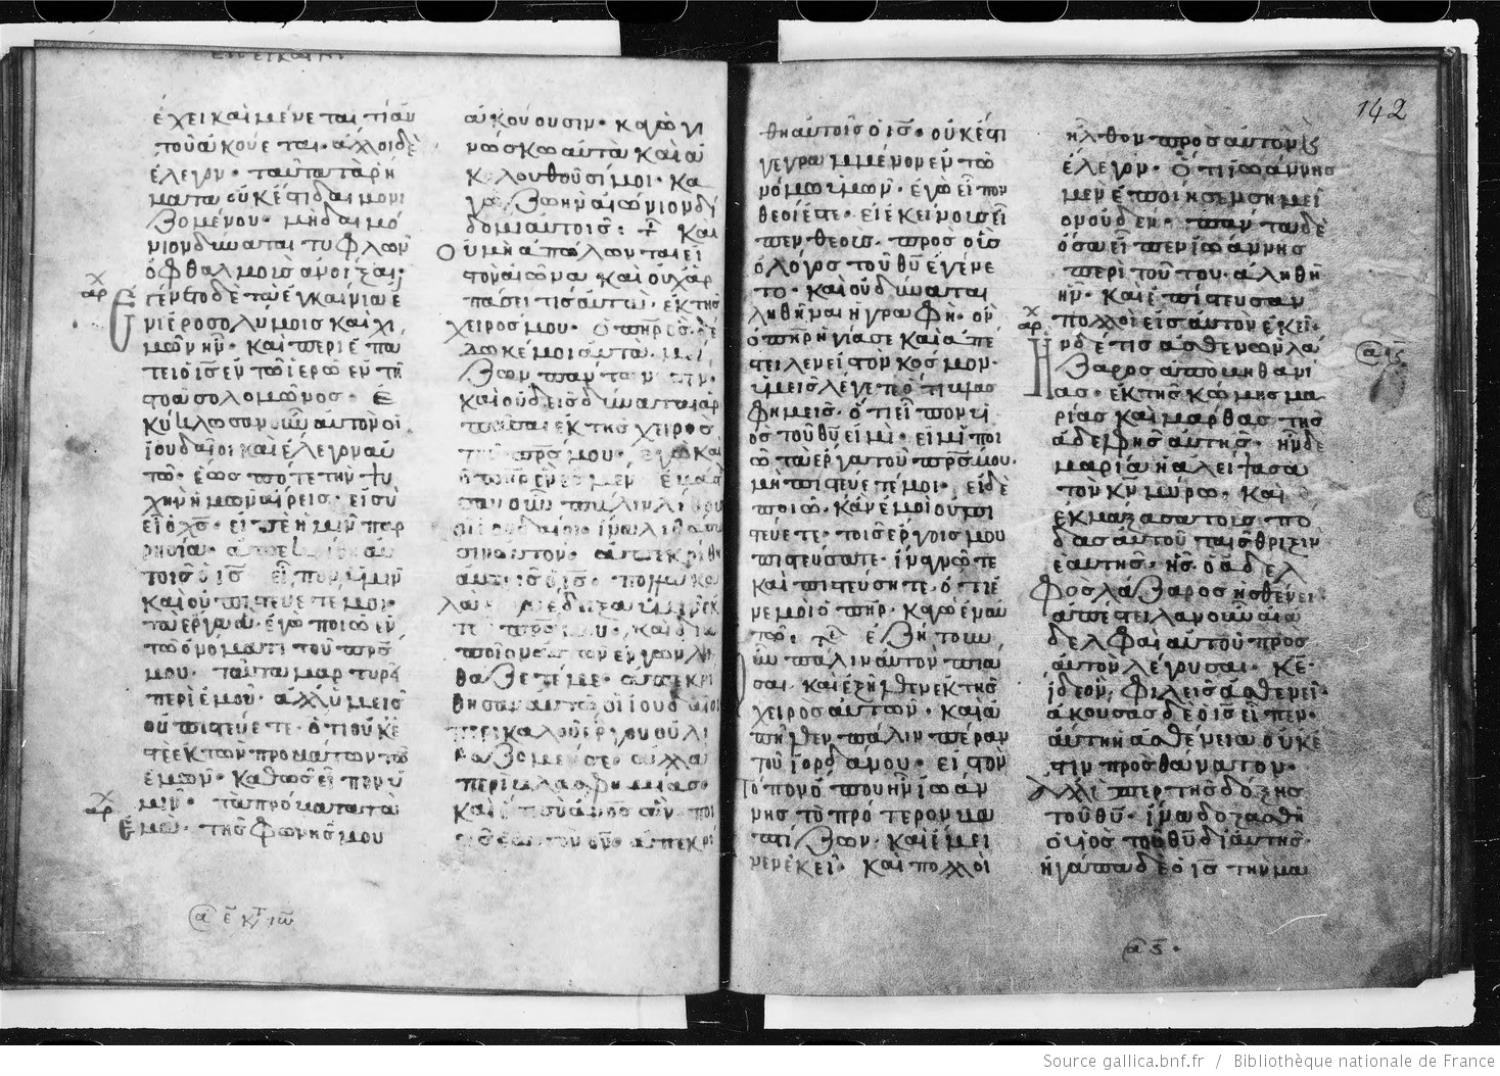 ἔχει καὶ μένεται τί αὐ
τοῦ ἀκούεται· ἄλλοι δὲ
ἔλεγον· ταῦτα τὰ ῥή
ματα οὐκ ἔστι δαιμονι
ζομένου· μὴ δαιμό
νιον δύναται τυφλῶν
ὀφθαλμοὺσ ἀνοῖξαι·
χ
αρ
Εγένετο δὲ τὰ ἐγκαίνια ἐ
ν ἱεροσολύμοισ καὶ χι
μὼν ἦν· καὶ περιεπά
τει ὁ ισ ἐν τῶ ἱερῶ ἐν τῆ
στοᾶ σολομῶνοσ· Ἐ
κύκλωσαν οὖν αὐτὸν οἱ
ἰουδαῖοι καὶ ἔλεγον αὐ
τῶ· ἕωσ πότε τὴν ψυ
χὴν ἡμῶν αἴρεισ· εἰ σὺ
εἶ ὁ χσ· εἰπὲ ἡμῖν παρ
ρησία·
τοῖσ ὁ ισ εἶπον ὑμῖν
καὶ οὐ πιστεύετέ μοι·
τὰ ἔργα ἃ ἐγὼ ποιῶ ἐν
τῶ ὀνόματι τοῦ πρσ
μου· ταῦτα μαρτυρεῖ
περὶ ἐμοῦ· ἀλλ' ὑμεῖσ
οὐ πιστεύετε· ὅτι οὐκ ἐ
στὲ ἐκ τῶν προβάτων τῶ
ἐμῶν· καθὼσ εἶπον ὑ
μῖν·
χ
αρ
τὰ πρόβατα τὰ
ἐμὰ· τῆσ φωνῆσ μου
ἀκούουσιν· καγὼ γι
νώσκω αὐτὰ καὶ ἀ
κολουθοῦσί μοι· κα
γὼ ζωὴν αἰώνιον δί
δωμι αὐτοῖσ· καὶ
οὐ μὴ ἀπόλωνται εἰ
σ τὸν αἰῶνα· καὶ οὐχ ἁρ
πάσει τισ αὐτὰ· ἐκ τῆσ
χειρόσ μου· ὁ πηρ ὃσ δέ
δωκέ μοι αὐτὰ
μεῖζων πάντων ἐστὶν·
καὶ οὐδεὶσ δύναται ἁρ
πάσαι ἐκ τῆσ χειρὸσ
τοῦ πρσ μου· ἐγὼ καὶ
ὁ πηρ ἕν ἐσμέν· ἐβάσ
τασαν οὖν πάλιν λίθουσ
οἱ ἰουδαῖοι ἵνα λιθάσω
σιν αὐτὸν· ἀπεκρίθη
αὐτοῖσ ὁ ισ· πολλὰ κα
λὰ ἔργα ἔδειξα ὑμῖν ἐκ
τοῦ πρσ μου· καὶ διὰ
ποῖον αὐτῶν ἔργον λι
θάζετέ με· ἀπεκρί
θησαν αὐτῶ οἱ ἰουδαῖοι
περὶ καλοῦ ἔργου οὐ λι
θάζομέν σε· ἀλλὰ
περὶ βλασφημίασ·
καὶ ὅτι σὺ ἄνοσ ὢν ποι
εῖσ ἑαυτὸν θν· ἀπεκρί
α ε κτ ιω
142
θη αὐτοῖσ ὁ ισ· οὐκ ἔστι
γεγραμμένον ἐν τῶ
νόμω ὑμῶν· ἐγὼ εἶπον
θεοί ἐστε· εἰ ἐκείνουσ εἶ
πεν θεοὺσ· πρὸσ οὓσ
ὁ λόγοσ τοῦ θυ ἐγένε
το· καὶ οὐ δύναται
λυθῆναι ἡ γραφὴ· ὃν
ὁ πηρ ἡγίασε καὶ ἀπέ
στειλεν εἰσ τὸν κόσμον·
ὑμεῖσ λέγετε ὅτι βλασ
φημεῖσ· ὅτι εἶπον υἱ
ὸσ τοῦ θυ εἰμι· εἰ μὴ ποι
ῶ τὰ ἔργα τοῦ πρσ μου·
μὴ πιστεύετέ μοι· εἰ δὲ
ποιῶ· κἂν ἐμοὶ οὐ πισ
τεύετε· τοῖσ ἔργοισ μου
πιστεύσατε· ἵνα γνῶτε
καὶ πιστεύσητε· ὅτι ἐ
ν ἐμοὶ ὁ πηρ· καγὼ ἐν αὐ
τῶ· ἐζήτουν
οὖν πάλιν αὐτὸν πιά
σαι· καὶ ἐξῆλθεν ἐκ τῆσ
χειρὸσ αὐτῶν· καὶ ἀ
πῆλθεν πάλιν πέραν
τοῦ ἰορδάνου· εἰσ τὸν
τόπον ὅπου ἦν ἰωάν
νησ τὸ πρότερον βα
πτίζων· καὶ ἔμει
νεν ἐκεῖ· καὶ πολλοὶ
ἦλθον πρὸσ αὐτὸν καὶ
ἔλεγον· ὅτι ἰωάννησ
μὲν ἐποίησε σημεῖ
ον οὐδὲν· πάντα δὲ
ὅσα εἶπεν ἰωάννησ
περὶ τούτου· ἀληθῆ
ἦν· καὶ ἐπίστευσαν
πολλοὶ εἰσ αὐτὸν ἐκεῖ·
χ
αρ
Ἦν δέ τισ ἀσθενῶν λά
ζαροσ ἀπὸ βηθανί
ασ· ἐκ τῆσ κώμησ μα
ρίασ καὶ μάρθασ τῆσ
ἀδελφῆσ αὐτῆσ· ἦν δὲ
μαρία ἡ ἀλείψασα
τὸν κν μύρω· καὶ
ἐκμάξασα τοὺσ πό
δασ αὐτοῦ ταῖσ θριξὶν
ἑαυτῆσ· ἧσ ὁ ἀδελ
φὸσ λάζαροσ ἠσθένει·
ἀπέστειλαν οὖν αἱ ἀ
δελφαὶ αὐτοῦ πρὸσ
αὐτὸν λέγουσαι· κε·
ἴδε ὃν φιλεῖσ ἀσθενεῖ·
ἀκούσασ δὲ ὁ ισ εἶπεν·
αὕτη ἡ ἀσθένεια οὐκ ἔ
στιν πρὸσ θάνατον·
ἀλλ' ὑπὲρ τῆσ δόξησ
τοῦ θυ· ἵνα δοξασθῆ
ὁ υἱὸσ τοῦ θυ δι' αὐτῆσ·
ἠγάπα δὲ ὁ ισ τὴν μα
α ς
Source gallica.bnf.fr / Bibliothèque nationale de France